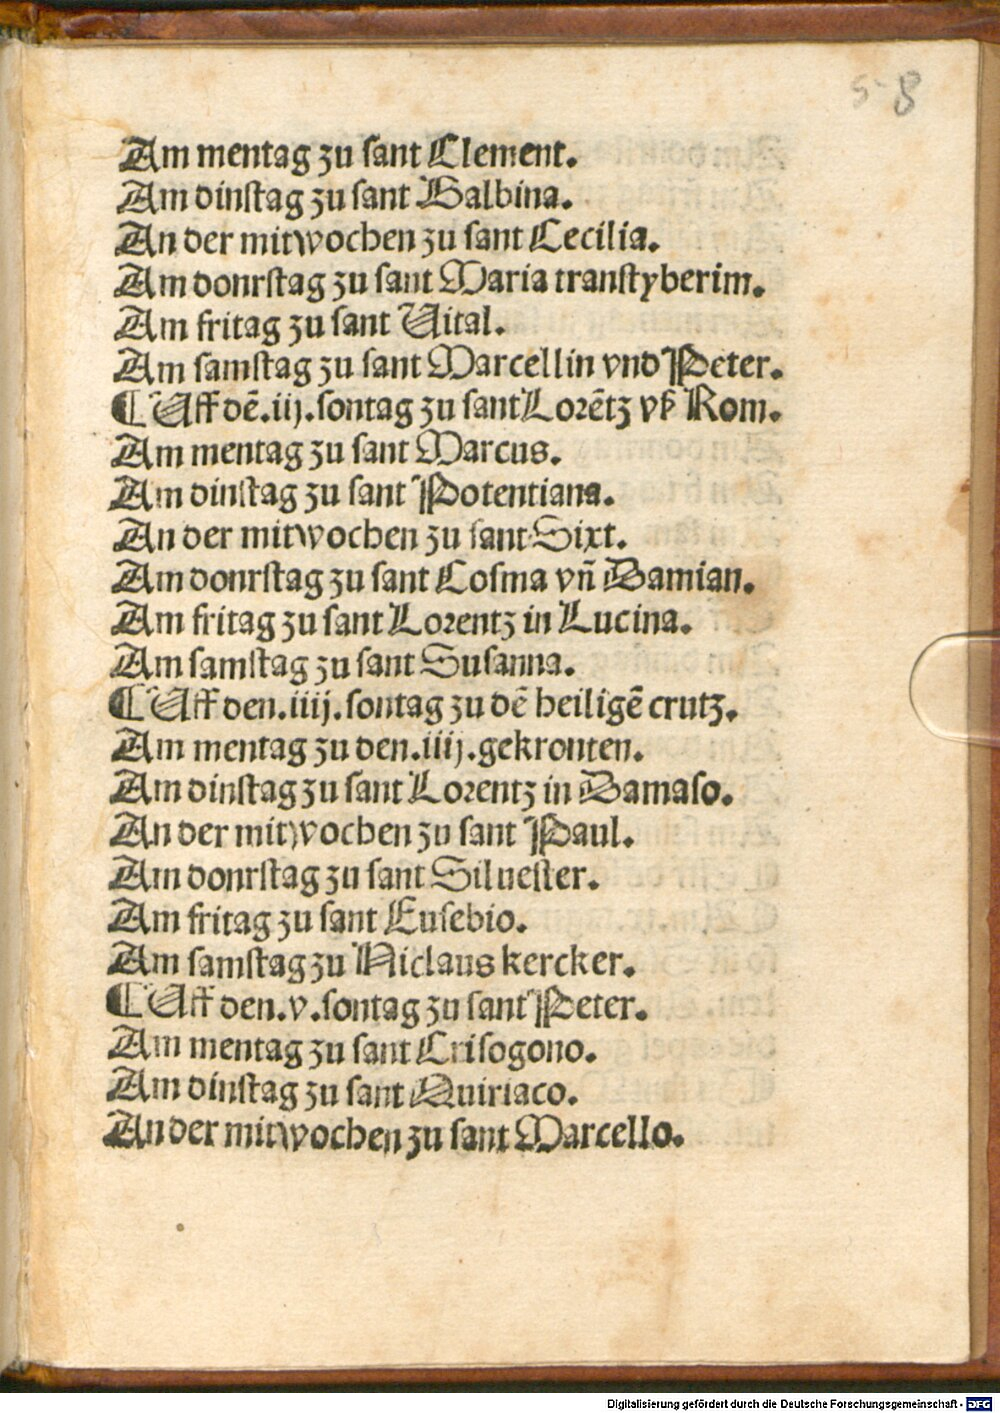 58
Am mentag zu sant Clement.
Am dinstag zu sant Balbina.
An der mitwochen zu sant Cecilia.
Am donrstag zu sant Maria transtyberim.
Am fritag zu sant Vital.
Am samstag zu sant Marcellin vnd Peter.
¶ Uff dē .iij. sontag zu sant Lorētz vß Rom.
Am mentag zu sant Marcus.
Am dinstag zu sant Potentiana.
An der mitwochen zu sant Sixt.
Am donrstag zu sant Cosma vn̄ Damian.
Am fritag zu sant Lorentz in Lucina.
Am samstag zu sant Susanna.
¶ Uff den .iiij. sontag zu dē heiligē crutz.
Am mentag zu den .iiij. gekronten.
Am dinstag zu sant Lorentz in Damaso.
An der mitwochen zu sant Paul.
Am donrstag zu sant Siluester.
Am fritag zu sant Eusebio.
Am samstag zu Niclaus kercker.
¶ Uff den .v. sontag zu sant Peter.
Am mentag zu sant Crisogono.
Am dinstag zu sant Quiriaco.
An der mitwochen zu sant Marcello.
Digitalisierung gefördert durch die Deutsche Forschungsgemeinschaft - DFG